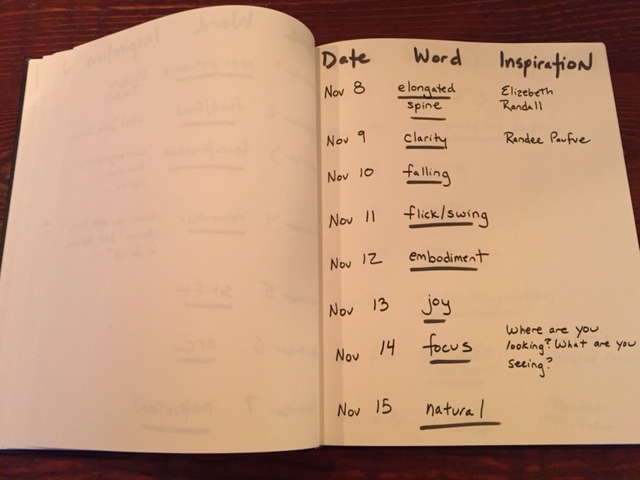 Date Word Inspiration
Nov 8 elongated Elizebeth
spine Randall
Nov 9 clarity Randee Paufve
Nov 10 falling
Nov 11 flick/swing
Nov 12 embodiment
Nov 13 joy
Nov 14 focus Where are you
looking? What are you
seeing?
Nov 15 natural